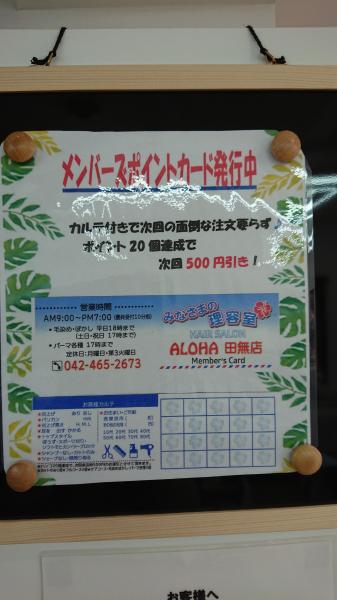 メンバーズポイントカード発行中
カルテ付きで次回の面倒な注文要らず
ポイント20個達成で
次回500円引き！
営業時間
AM9:00～PM7:00(最終受付10分前)
・毛染め・ぼかし 平日18時まで
(土日・祝日 17時まで)
・パーマ各種 17時まで
定休日:月曜日・第3火曜日
042-465-2673
みなさまの
理容室
HAIR SALON
ALOHA 田無店
Member's Card
お客様カルテ
お客様へ